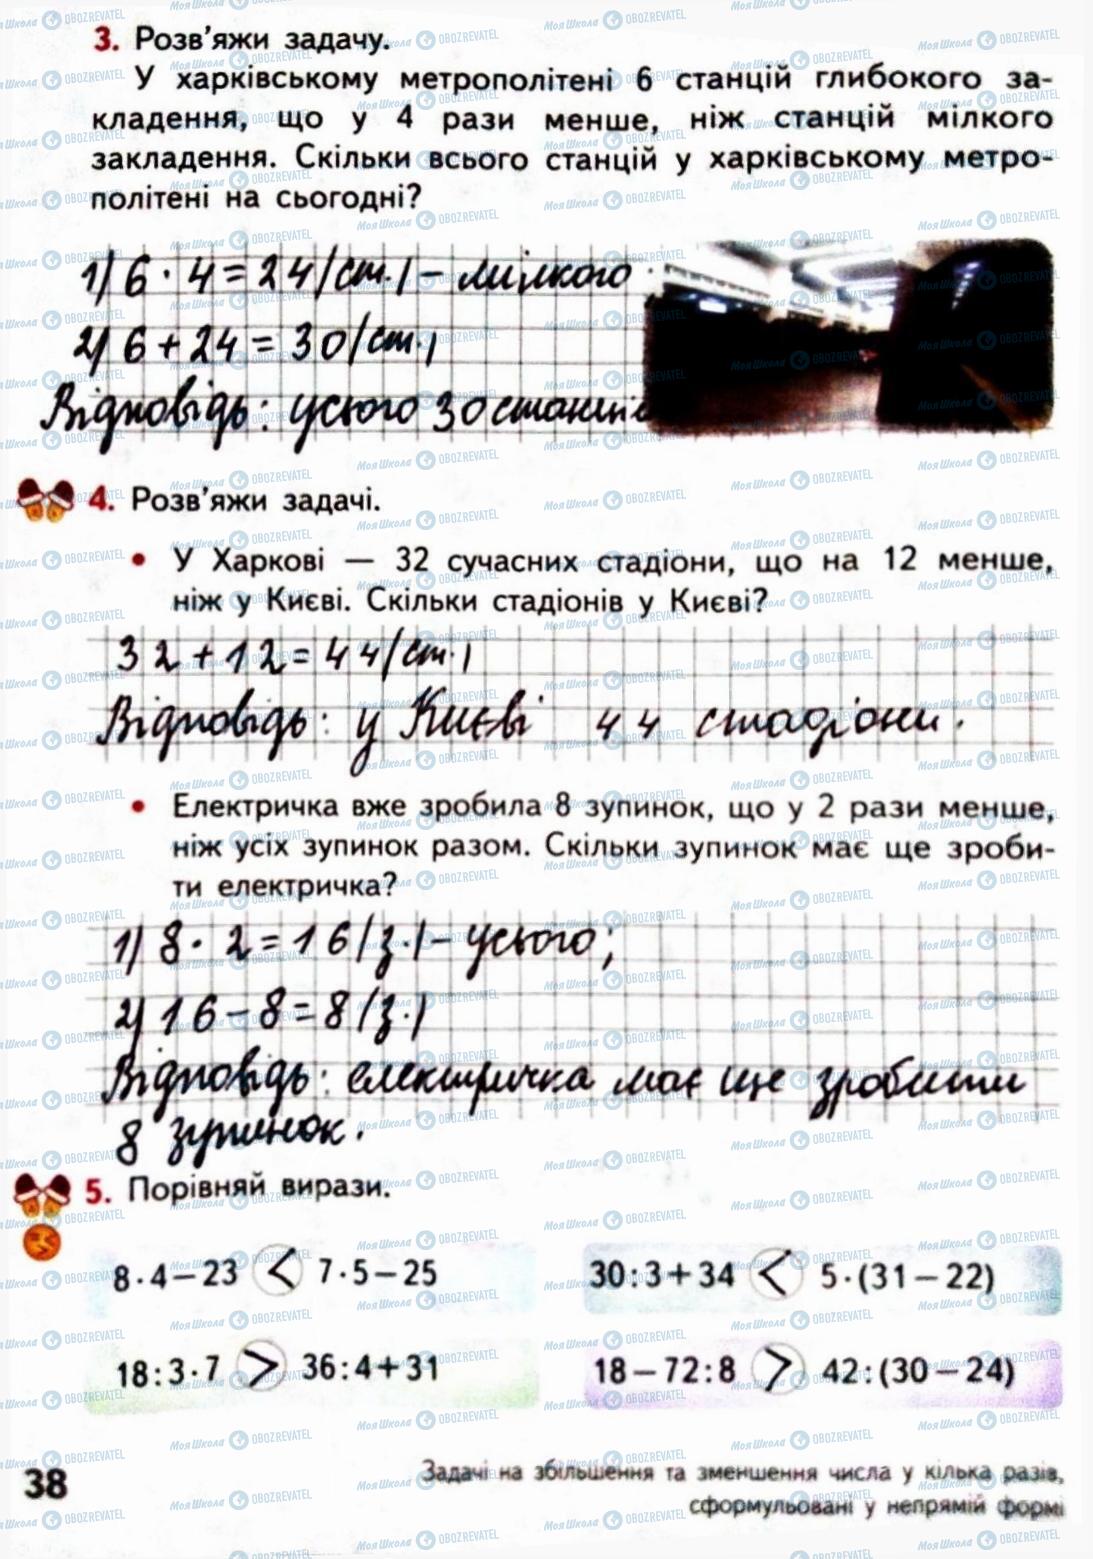 3. Розв'яжи задачу.
У харківському метрополітені 6 станцій глибокого за-
кладення, що у 4 рази менше, ніж станцій мілкого
закладення. Скільки всього станцій у харківському метро-
політені на сьогодні?
1) 6 · 4 = 24 (ст.) – мілкого
2) 6 + 24 = 30 (ст.)
Відповідь: усього 30 станцій
4. Розв'яжи задачі.
• У Харкові — 32 сучасних стадіони, що на 12 менше,
ніж у Києві. Скільки стадіонів у Києві?
32 + 12 = 44 (ст.)
Відповідь: у Києві 44 стадіони.
• Електричка вже зробила 8 зупинок, що у 2 рази менше,
ніж усіх зупинок разом. Скільки зупинок має ще зроби-
ти електричка?
1) 8 · 2 = 16 (з.) – усього;
2) 16 – 8 = 8 (з.)
Відповідь: електричка має ще зробити
8 зупинок.
5. Порівняй вирази.
8 · 4 – 23 < 7 · 5 – 25
30 : 3 + 34 < 5 · (31 – 22)
18 : 3 · 7 > 36 : 4 + 31
18 – 72 : 8 > 42 : (30 – 24)
38
Задачі на збільшення та зменшення числа у кілька разів,
сформульовані у непрямій формі
Моя Школа OBOZREVATEL